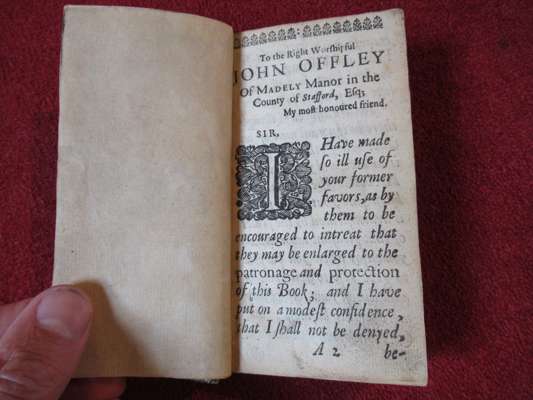 To the Right Worshipful
JOHN OFFLEY
Of MADELY Manor in the
County of Stafford, Esq;
My most honoured friend.
SIR,
I Have made
so ill use of
your former
favors, as by
them to be
encouraged to intreat that
they may be enlarged to the
patronage and protection
of this Book; and I have
put on a modest confidence,
that I shall not be denyed,
A 2 be-